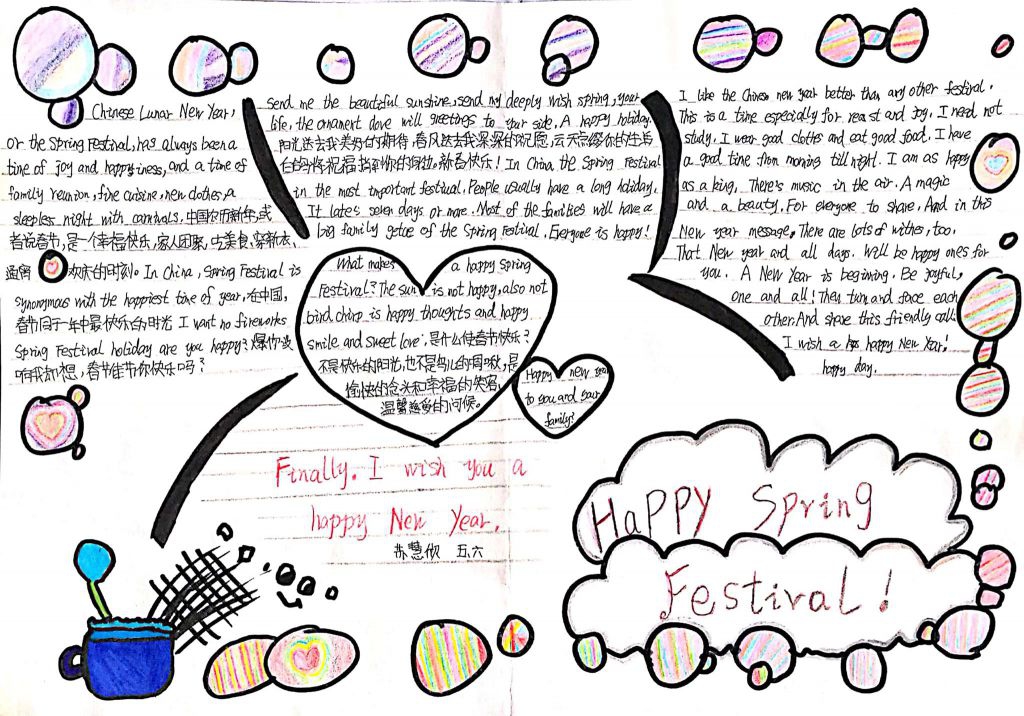 Chinese Lunar New Year,
or the Spring Festival, has always been a
time of joy and happyiness, and a time of
family reunion, fine cuisine, new clothes, a
sleepless night with carnivals. 中国农历新年,或
者说春节,是一个幸福快乐,家人团聚,吃美食,穿新衣、
欢庆的时刻。In China, Spring Festival is
synonymous with the happiest time of year,在中国,
春节同于一年中最快乐的时光 I want no fireworks
Spring Festival holiday are you happy? 爆你没
响我却想,春节佳节你快乐吗?
Send me the beautiful sunshine, send my deeply wish spring, your
life, the ornament dove will greetings to your side. A happy holiday.
阳光送去我美好的期待 春风送去我深深的祝愿,
新春快乐! In China, the Spring Festival
in the most important festival. People usually have a long holiday.
It lates seven days or more. Most of the families will have a
big family getoe of the Spring Festival. Everyone is happy!
I like the Chinese new year better than any other festival.
This is a time especially for reast and joy. I need not
study. I wear good cloths and eat good food. I have
a good time from morning till night. I am as happy
as a king. There's music in the air. A magic
and a beauty. For everyone to share. And in this
New year message. There are lots of wither, too.
That New year and all days. Will be happy ones for
you. A New Year is beginning. Be joyful,
one and all! They turn and face each
other. And share this friendly call.
I wish a happy New Year!
happy day.
What makes a happy Spring
Festival? The sun is not happy, also not
bird chirp is happy thoughts and happy
smile and Sweet love; 是什么使春节快乐?
不是快乐的阳光,也不是鸟儿的啁啾,是
愉快的念头和幸福的笑容,
温馨慈爱的问候。
Happy new year
to you and your
family!
Finally. I wish you a
happy New Year.
苏慧欣 五.六
HaPPY Spring
Festival!